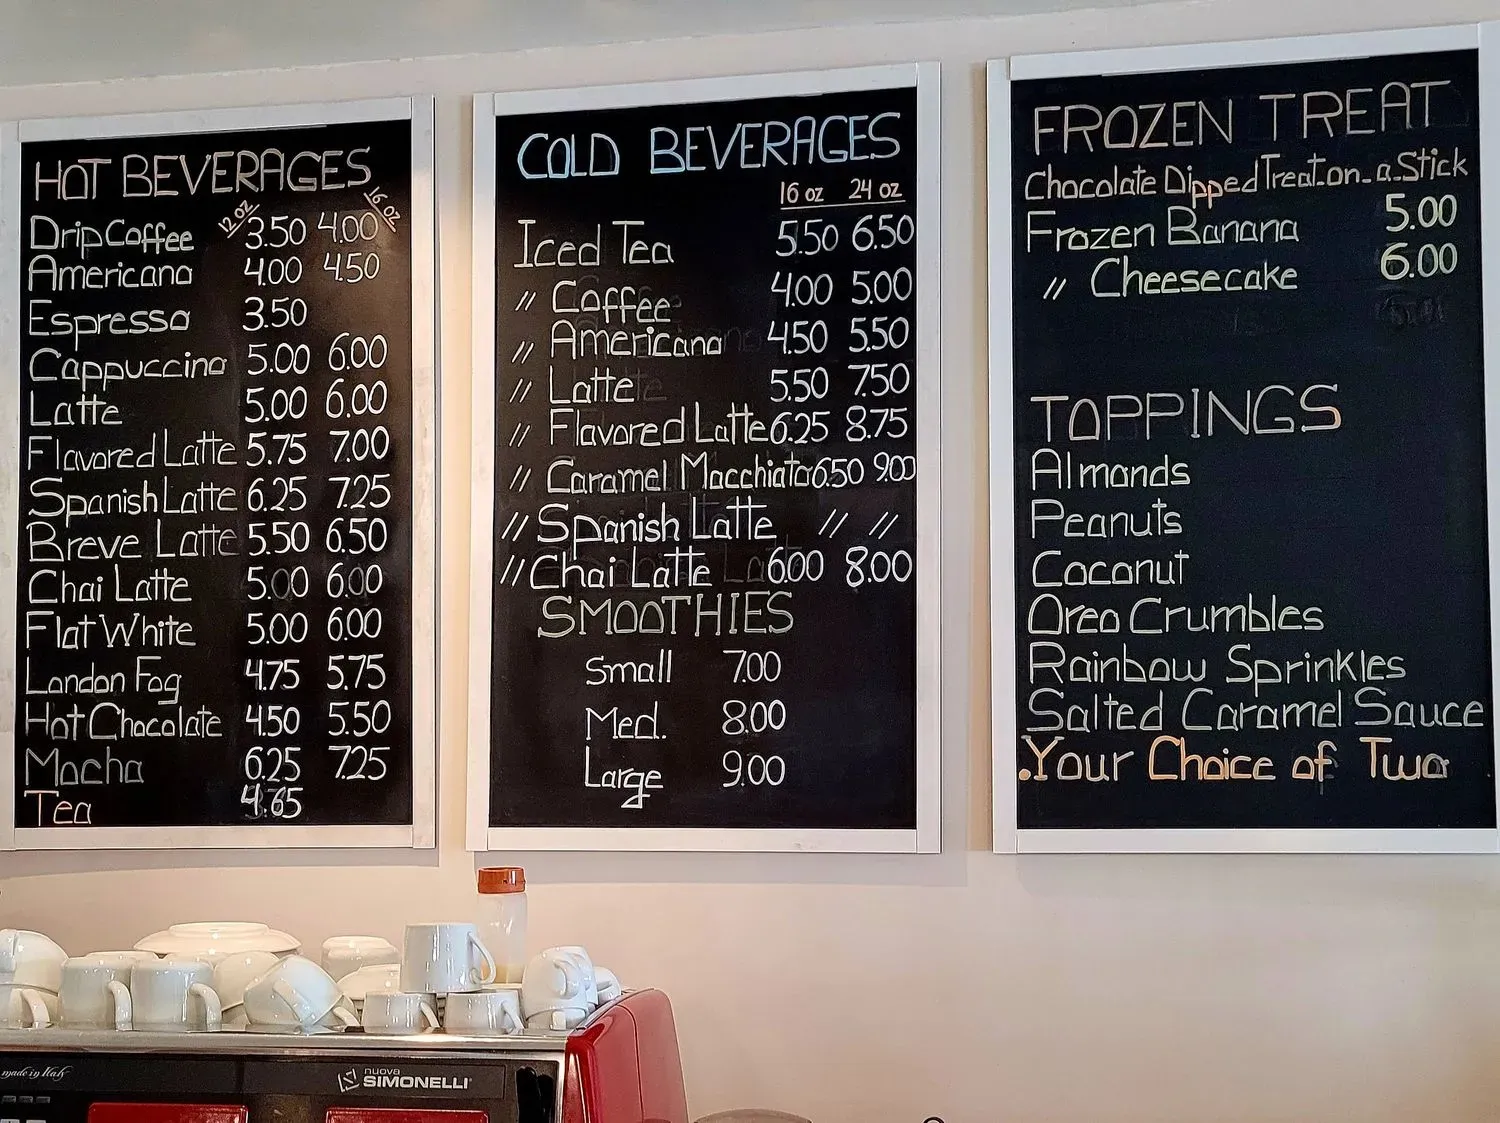 HOT BEVERAGES
12 oz 16 oz
Drip Coffee 3.50 4.00
Americano 4.00 4.50
Espresso 3.50
Cappuccino 5.00 6.00
Latte 5.00 6.00
Flavored Latte 5.75 7.00
Spanish Latte 6.25 7.25
Breve Latte 5.50 6.50
Chai Latte 5.00 6.00
Flat White 5.00 6.00
London Fog 4.75 5.75
Hot Chocolate 4.50 5.50
Mocha 6.25 7.25
Tea 4.65
COLD BEVERAGES
16 oz 24 oz
Iced Tea 5.50 6.50
// Coffee 4.00 5.00
// Americano 4.50 5.50
// Latte 5.50 7.50
// Flavored Latte 6.25 8.75
// Caramel Macchiato 6.50 9.00
// Spanish Latte // //
// Chai Latte 6.00 8.00
SMOOTHIES
Small 7.00
Med. 8.00
Large 9.00
FROZEN TREAT
Chocolate Dipped Treat-on-a-Stick
Frozen Banana 5.00
// Cheesecake 6.00
TOPPINGS
Almonds
Peanuts
Coconut
Oreo Crumbles
Rainbow Sprinkles
Salted Caramel Sauce
.Your Choice of Two
made in Italy
nuova
SIMONELLI